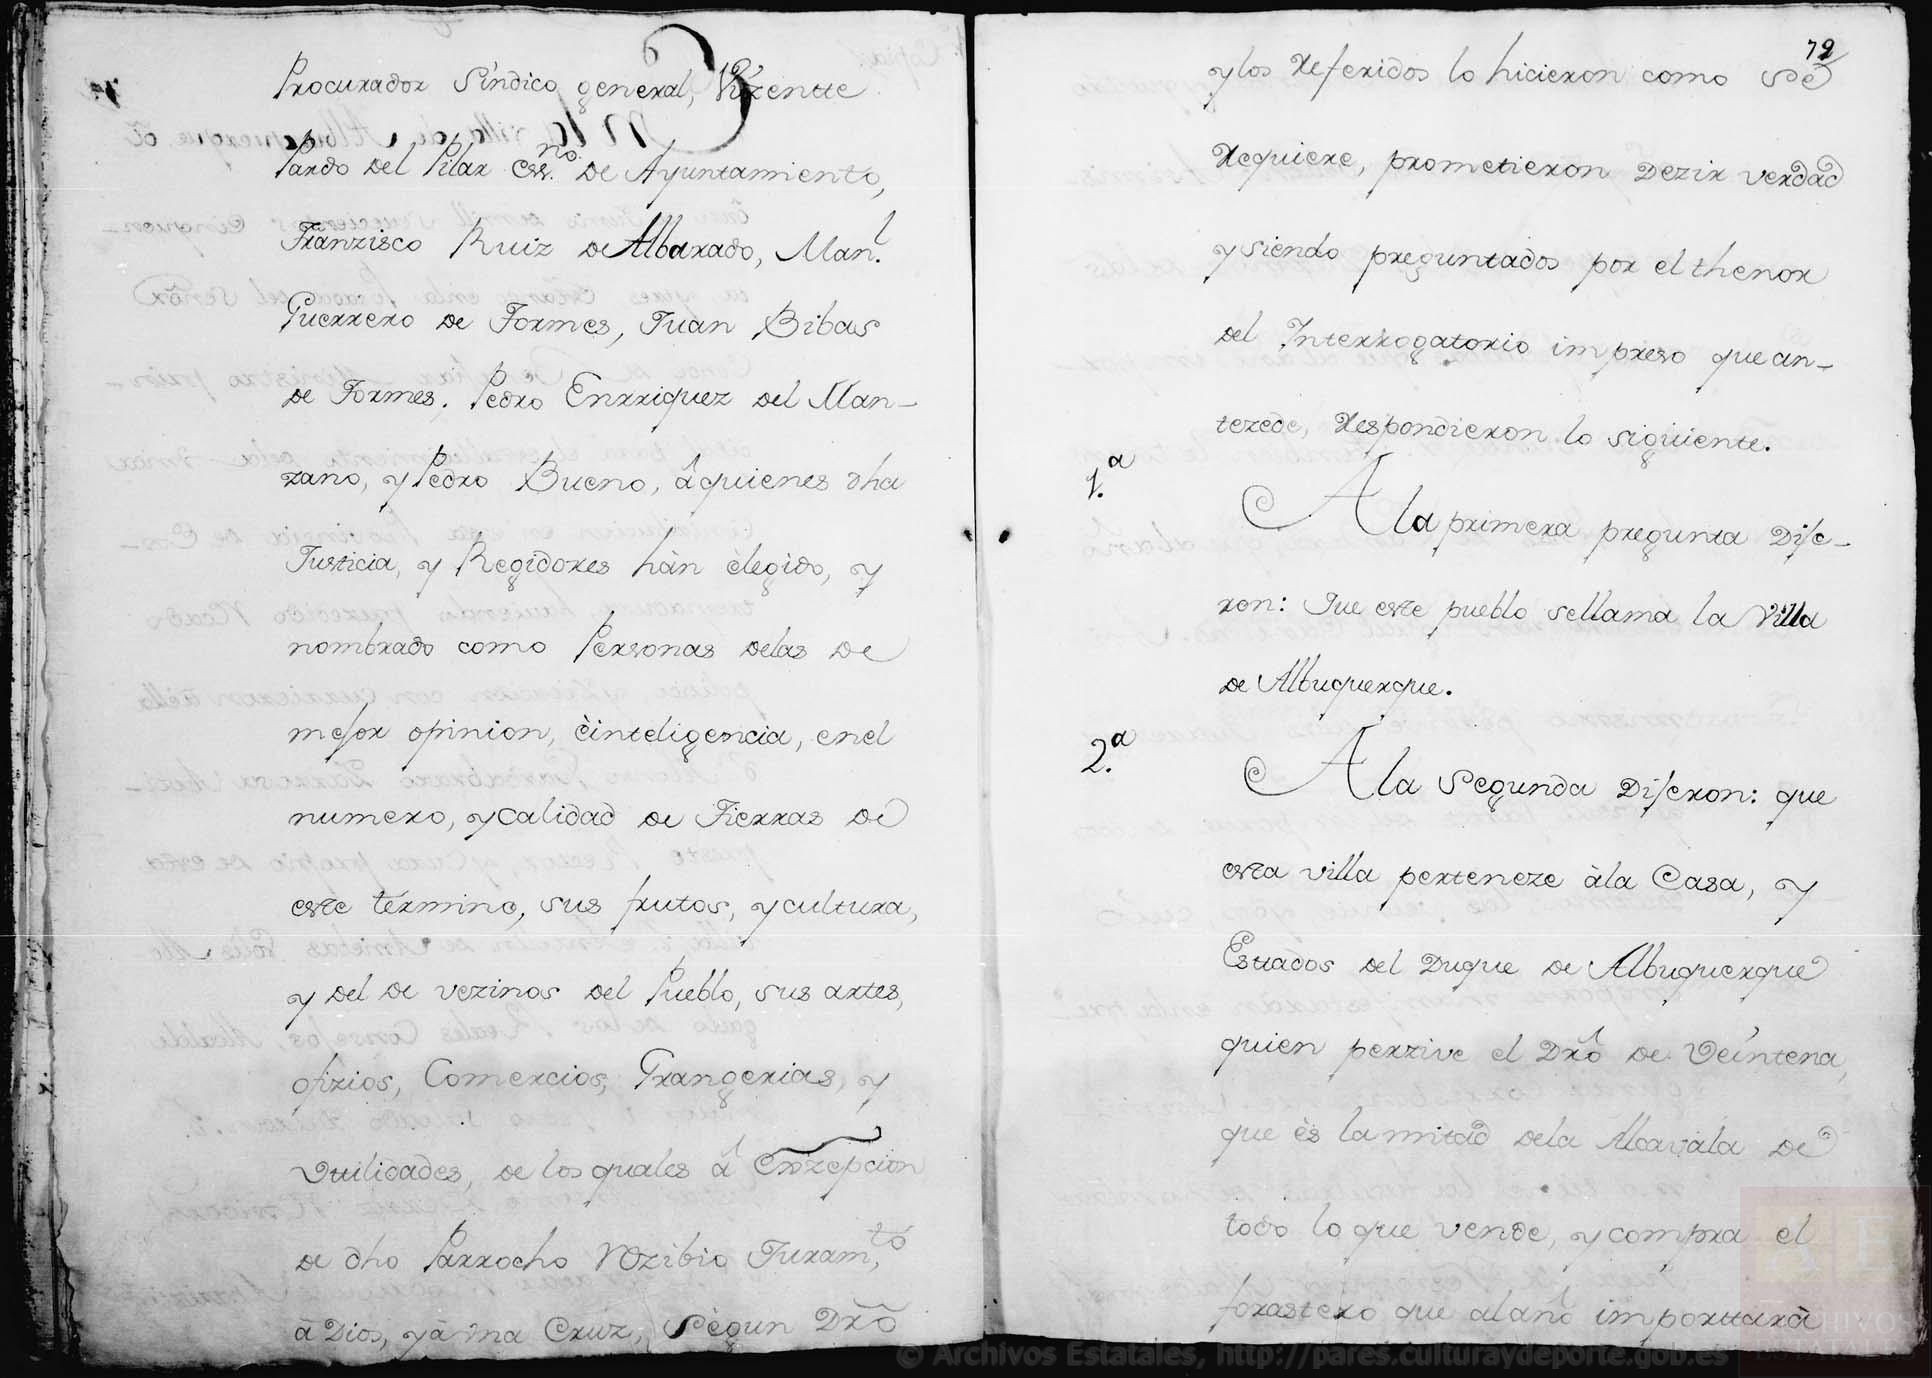 Procurador Síndico general, Vizente
Pardo del Pilar Ess.no de Ayuntamiento,
Franzisco Ruiz de Albarado, Man.l
Guerrero de Formes, Juan Bibas
de Formes, Pedro Enrriquez del Man-
zano, y Pedro Bueno, â quienes dha
Justicia, y Regidores hàn èlegido, y
nombrado como Personas delas de
mejor opinion, è inteligencia, en el
numero, y calidad de Tierras de
este término, sus frutos, y cultura,
y del de vezinos del Pueblo, sus artes,
ofizios, Comercios, Grangerias, y
Vtilidades, de los quales â Excepcion
de dho Parrocho Rezibio Juram.to
à Dios, y à vna Cruz, Sègun Dro
72
y los Referidos lo hicieron como Se
Requiere, prometieron Dezir verdad
y siendo preguntados por el thenor
del Interrogatorio impreso que an-
tezede, Respondieron lo sigüiente.
1.a
A la primera pregunta Dije-
ron: Que este pueblo sellama la Villa
de Albuquerque.
2.a
A la Segunda Dijeron: que
esta villa perteneze àla Casa, y
Estados del Duque de Albuquerque
quien perzive el Dro de Veíntena,
que ès la mitad dela Alcavala de
todo lo que vende, y compra el
forastero que al año importtarà
© Archivos Estatales, http://pares.culturaydeporte.gob.es
AE
ARCHIVOS
ESTATALES